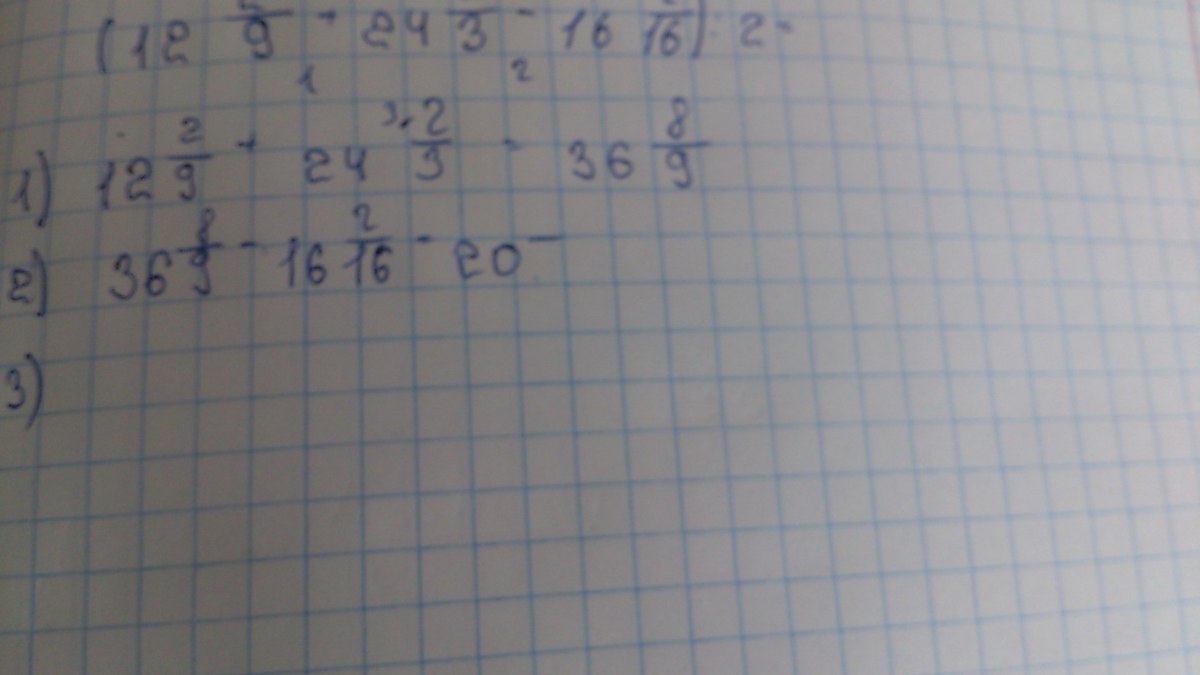 (12 /9 + 24 /3 - 16 /16) · 2 =
1 2
1) 12 2/9 + 24 2/3 = 36 8/9
2) 36 8/9 - 16 2/16 = 20 —
3)